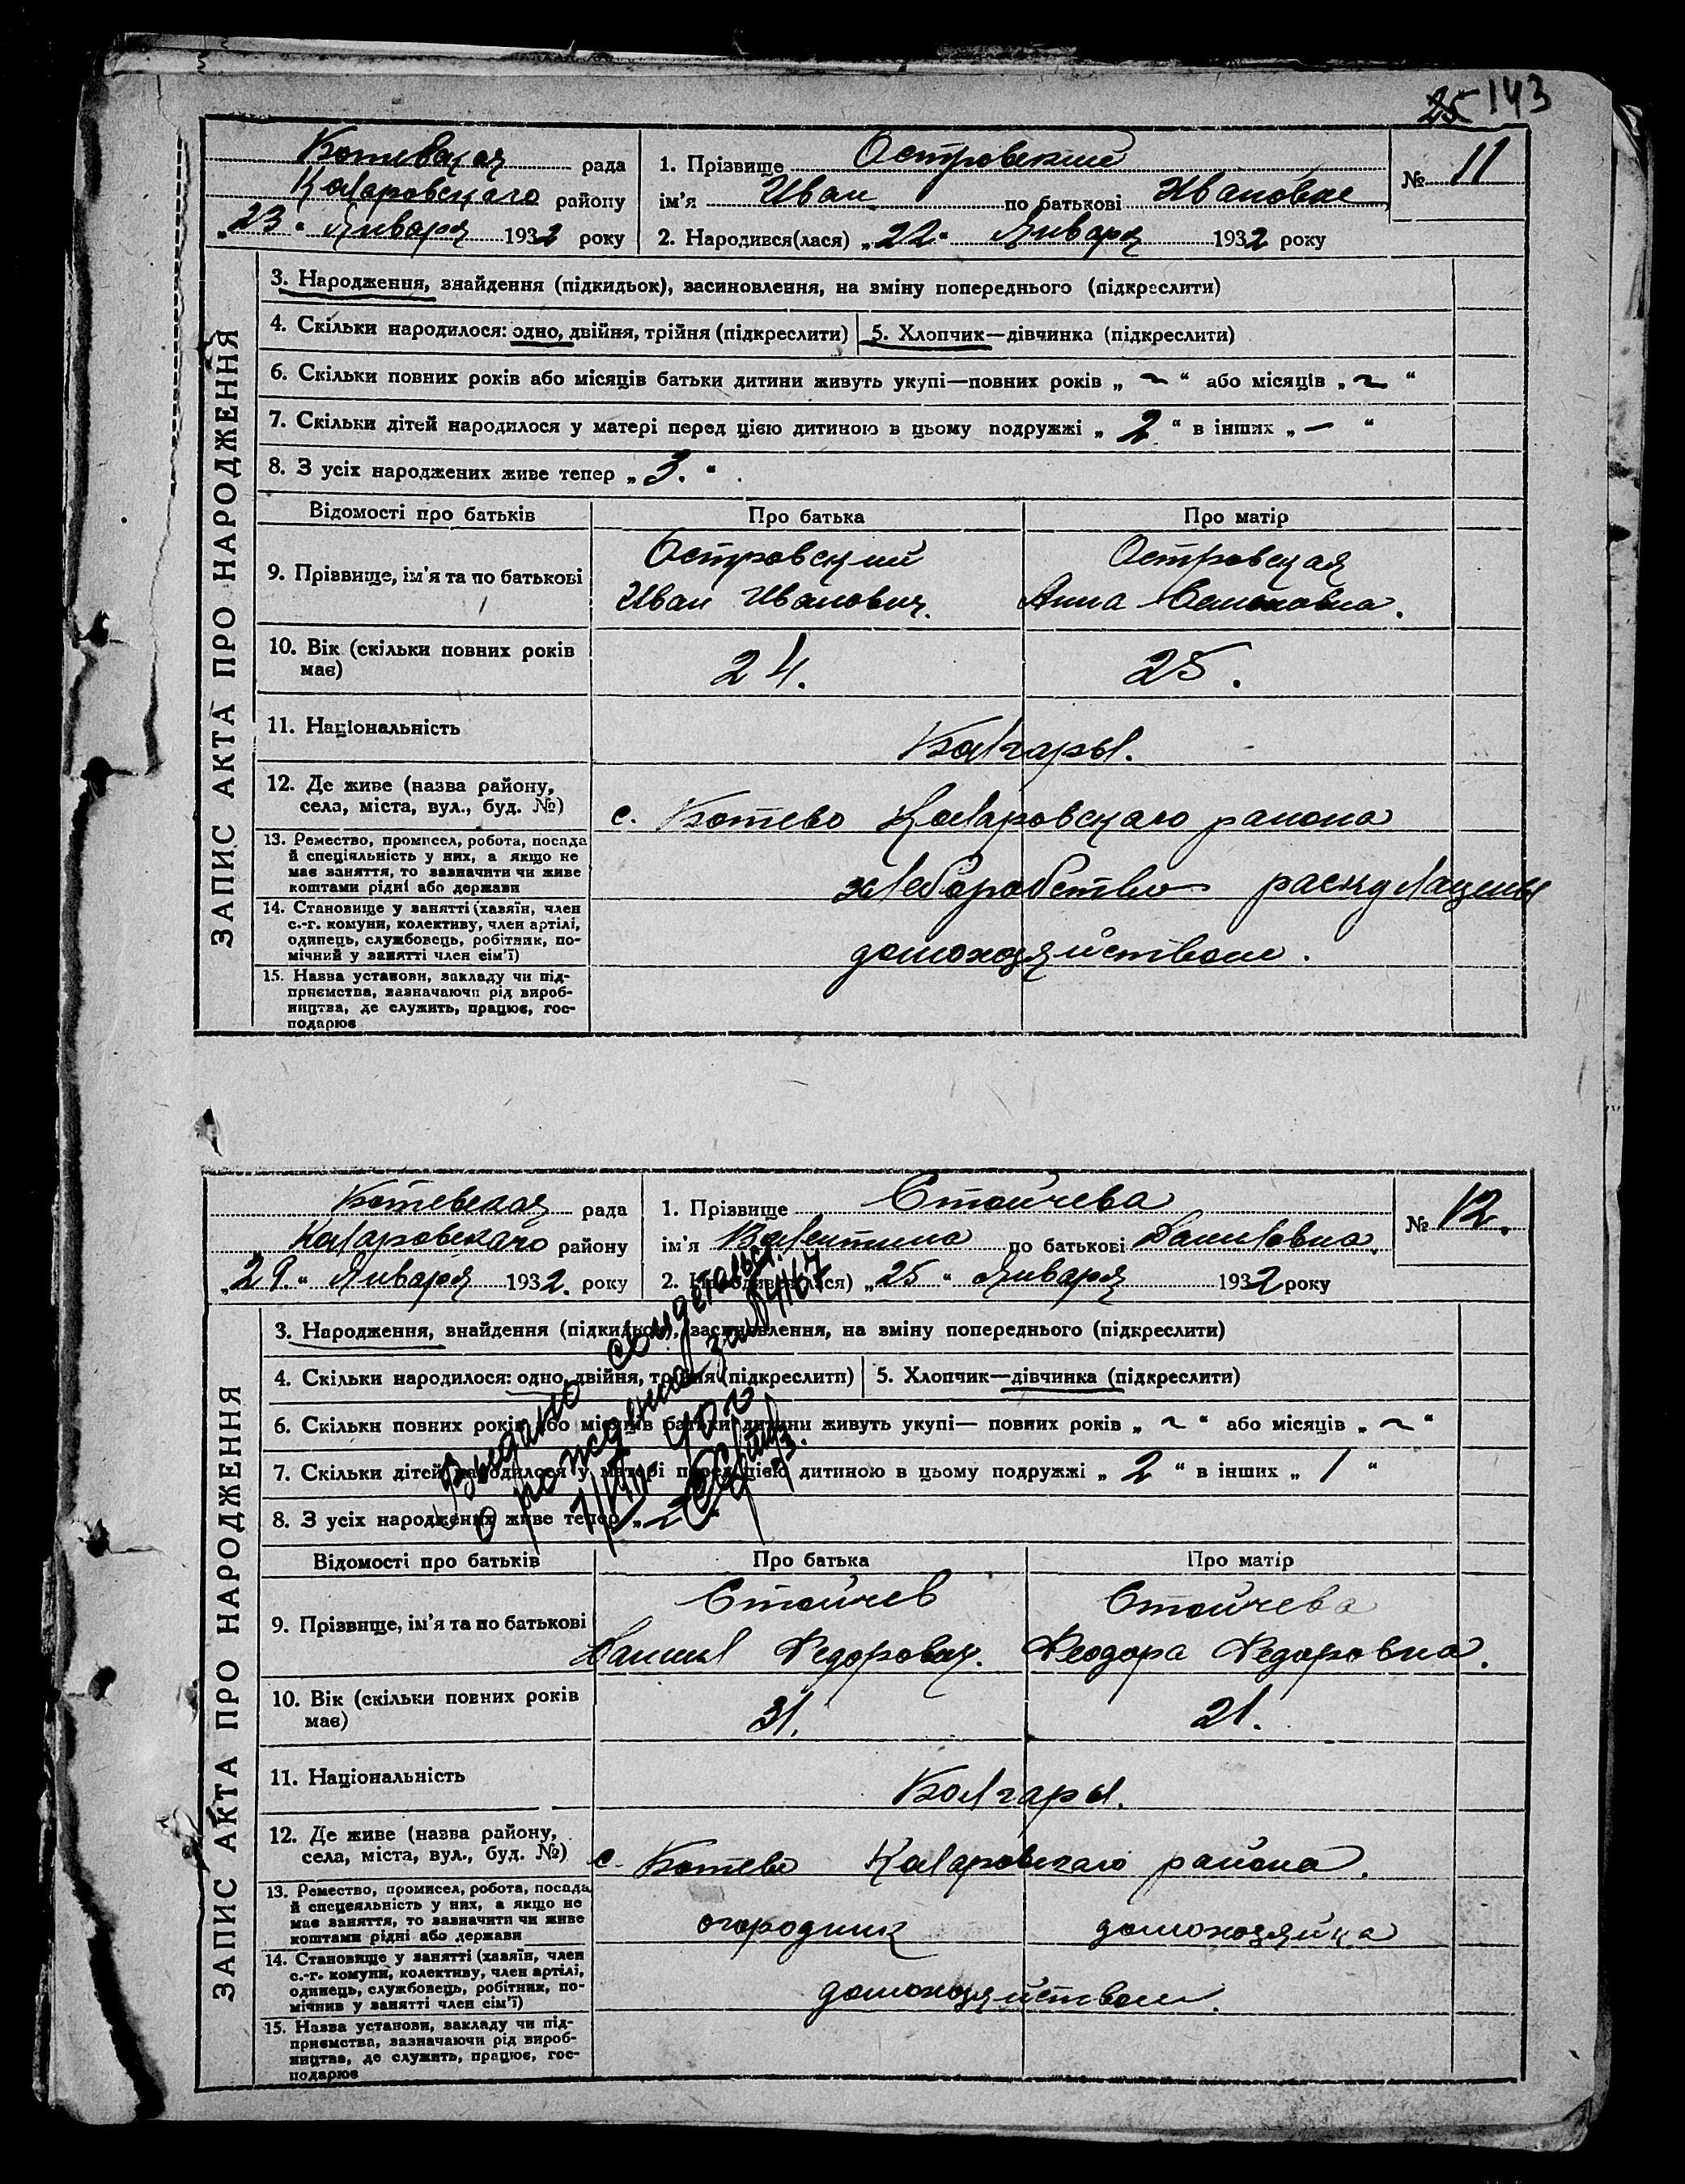 25 143
Ботевская рада
Коларовского району
„23" Января 1932 року
1. Прізвище Островский
№ 11
ім'я Иван по батькові Иванович
2. Народився(лася) „22" Января 1932 року
ЗАПИС АКТА ПРО НАРОДЖЕННЯ
3. Народження, знайдення (підкидьок), засиновлення, на зміну попереднього (підкреслити)
4. Скільки народилося: одно, двійня, трійня (підкреслити) 5. Хлопчик—дівчинка (підкреслити)
6. Скільки повних років або місяців батьки дитини живуть укупі—повних років „ ~ " або місяців „ ~ "
7. Скільки дітей народилося у матері перед цією дитиною в цьому подружжі „ 2 " в інших „ — "
8. З усіх народжених живе тепер „ 3. "
Відомості про батьків Про батька Про матір
9. Прізвище, ім'я та по батькові
Островский
Иван Иванович.
Островская
Анна
10. Вік (скільки повних років
має)
24. 25.
11. Національність
Болгары.
12. Де живе (назва району,
села, міста, вул., буд. №)
с. Ботево Коларовского района
13. Ремество, промисел, робота, посада
й спеціяльність у них, а якщо не
має заняття, то зазначити чи живе
коштами рідні або держави
хлеборобство раскулачены
14. Становище у занятті (хазяїн, член
с.-г. комуни, колективу, член артілі,
одинець, службовець, робітник, по-
мічний у занятті член сім'ї)
домохозяйством.
15. Назва установи, закладу чи під-
приємства, зазначаючи рід вироб-
ництва, де служить, працює, гос-
подарює
Ботевская рада
Коларовского району
„29." Января 1932. року
1. Прізвище Стойчева
№ 12.
ім'я Валентина по батькові Даниловна
2. Народився(лася) „25" Января 1932 року
ЗАПИС АКТА ПРО НАРОДЖЕННЯ
3. Народження, знайдення (підкидьок), засиновлення, на зміну попереднього (підкреслити)
4. Скільки народилося: одно, двійня, трійня (підкреслити) 5. Хлопчик—дівчинка (підкреслити)
6. Скільки повних років або місяців батьки дитини живуть укупі— повних років „ ~ " або місяців „ ~ "
7. Скільки дітей народилося у матері перед цією дитиною в цьому подружжі „ 2 " в інших „ 1 "
8. З усіх народжених живе тепер „ 2 "
Выдано свидетельст.
о рождении за №4167
Відомості про батьків Про батька Про матір
9. Прізвище, ім'я та по батькові
Стойчев
Данил Федорович.
Стойчева
Феодора Федоровна.
10. Вік (скільки повних років
має)
31. 21.
11. Національність
Болгары.
12. Де живе (назва району,
села, міста, вул., буд. №)
с. Ботево Коларовского района.
13. Ремество, промисел, робота, посада
й спецеяльність у них, а якщо не
має заняття, то зазначити чи живе
коштами рідні або держави
огородник домохозяйка
14. Становище у занятті (хазяїн, член
с.-г. комуни, колективу, член артілі,
одинець, службовець, робітник, по-
мічнив у занятті член сім'ї)
домохозяйством.
15. Назва установи, закладу чи під-
приємства, зазначаючи рід вироб-
ництва, де служить, працює, гос-
подарює